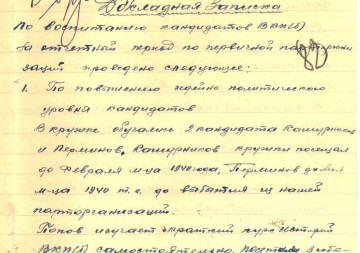 Докладная Записка
По воспитанию кандидатов ВКП(б)
За отчетный период по первичной парторгани
заций проведено следующее:
80
1. По повышению идейно политического
уровня кандидатов
В кружке обучались 2 кандидата Кашурников
и Перминов, Кашурников кружки посещал
до февраля м-ца 1940 года, Перминов до
м-ца 1940 т.г. до выбытия из нашей
парторганизаций.
Попов изучает краткий курс истории
ВКП(б) самостоятельно,